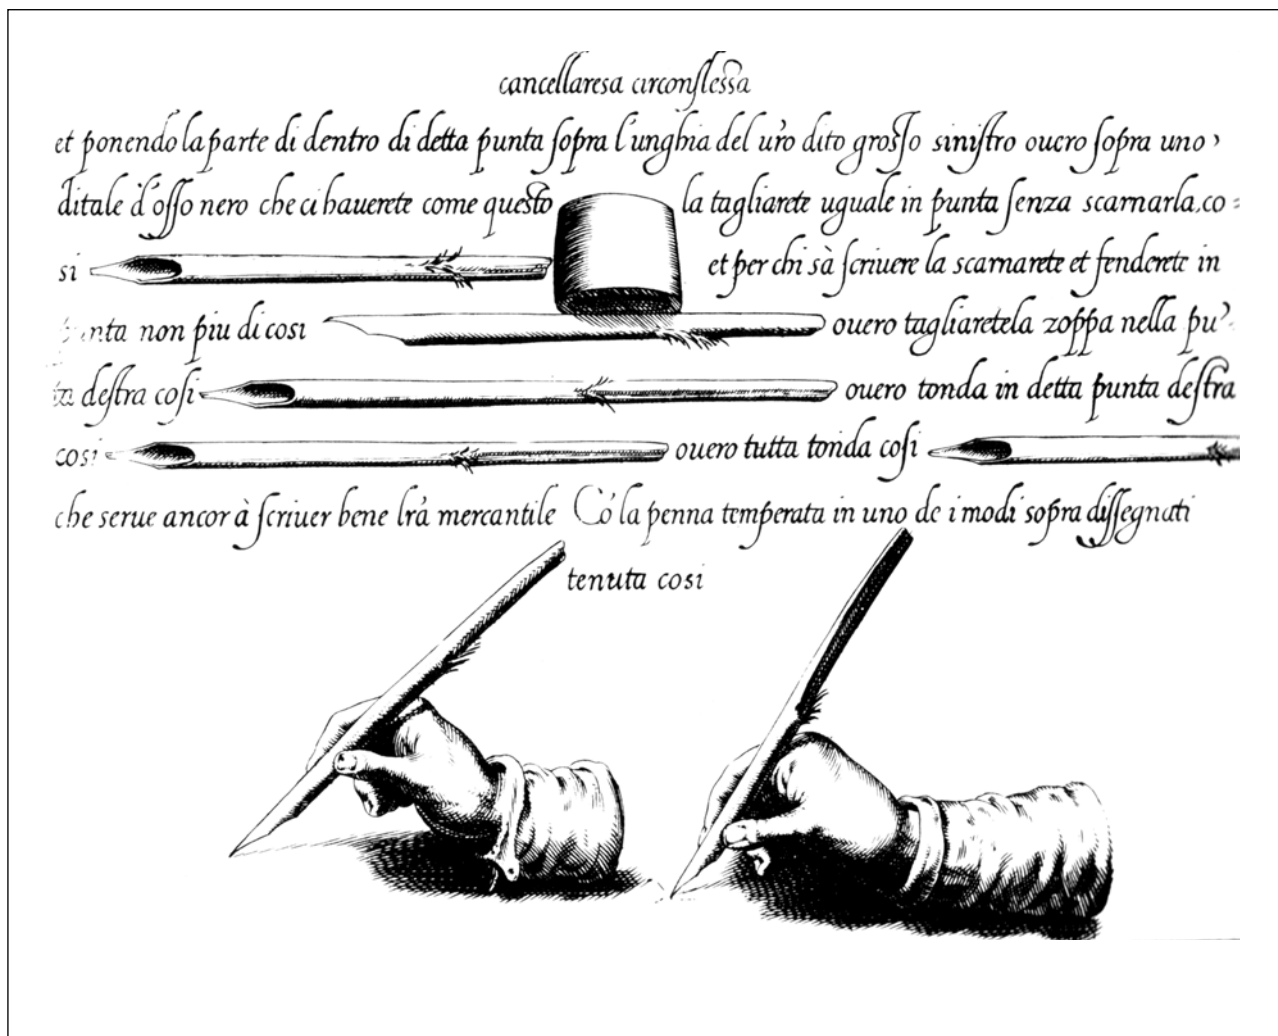 cancellaresa circonflessa
et ponendo la parte di dentro di detta punta sopra l'unghia del uro dito grosso sinistro ouero sopra uno
ditale d'osso nero che ci hauerete come questo la tagliarete uguale in punta senza scarnarla, co=
si et per chi sà scriuere la scarnarete et fenderete in
non piu di cosi ouero tagliaretela zoppa nella pu
ta destra cosi ouero tonda in detta punta destra
cosi ouero tutta tonda cosi
che serue ancor à scriuer bene lrã mercantile Cõ la penna temperata in uno de i modi sopra dissegnati
tenuta cosi